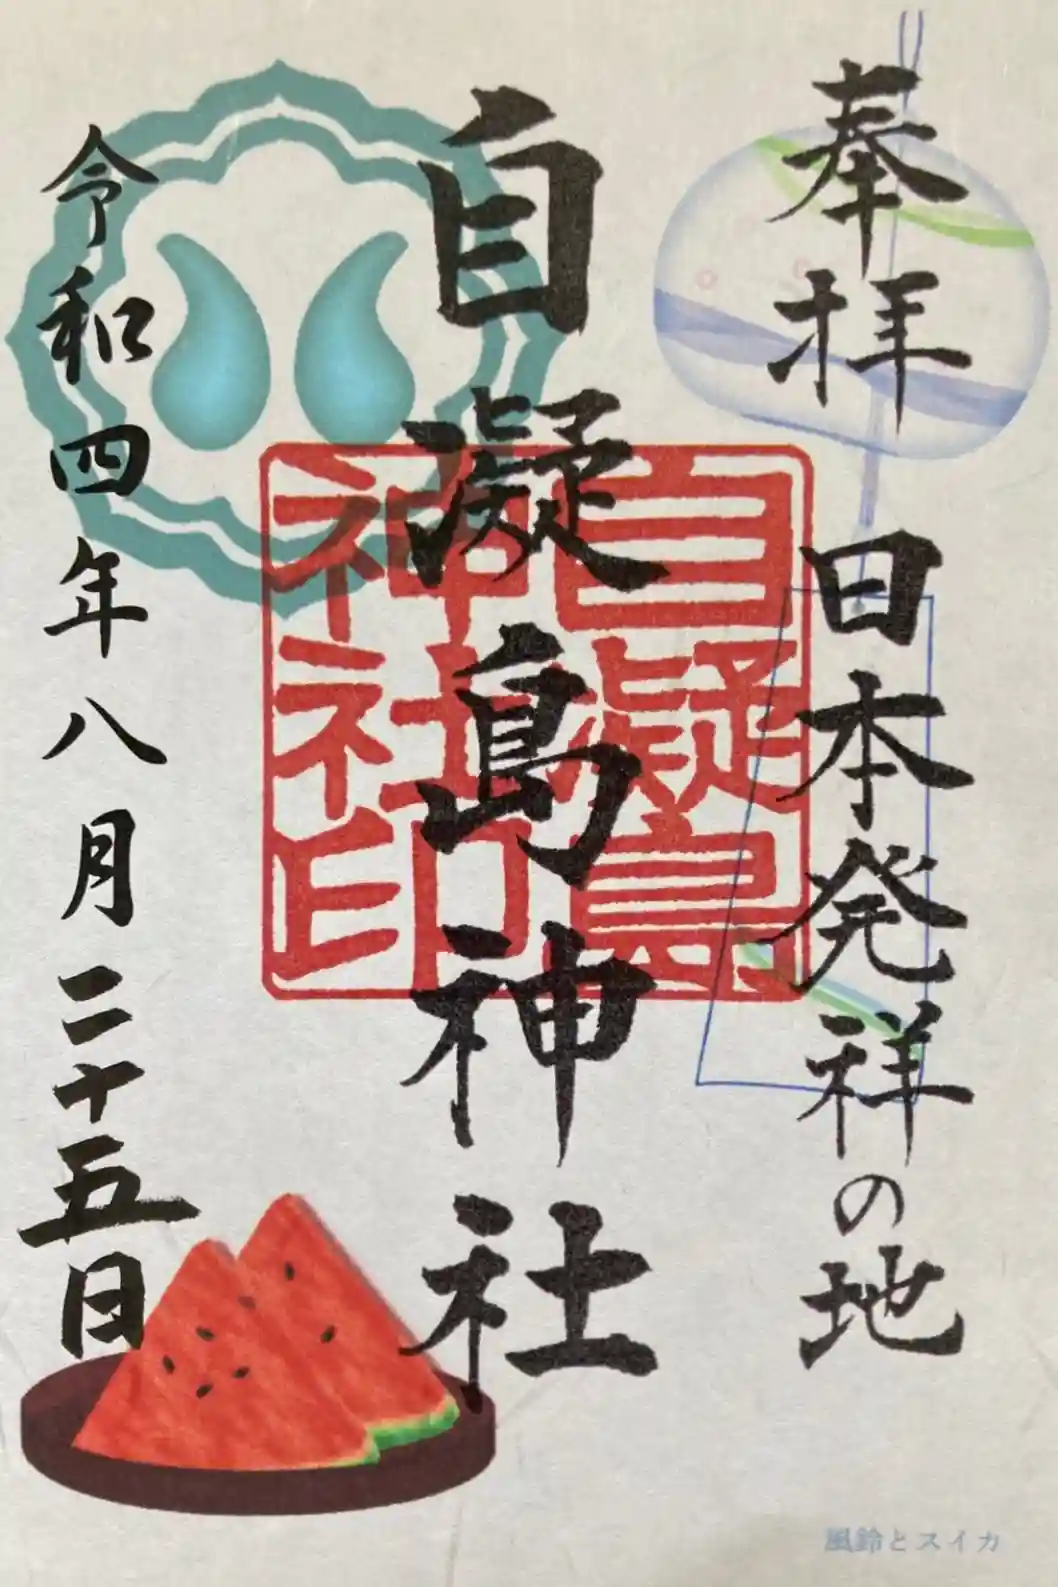 奉拝
日本発祥の地
自凝島神社
自凝島
神社印
令和四年八月二十五日
風鈴とスイカ